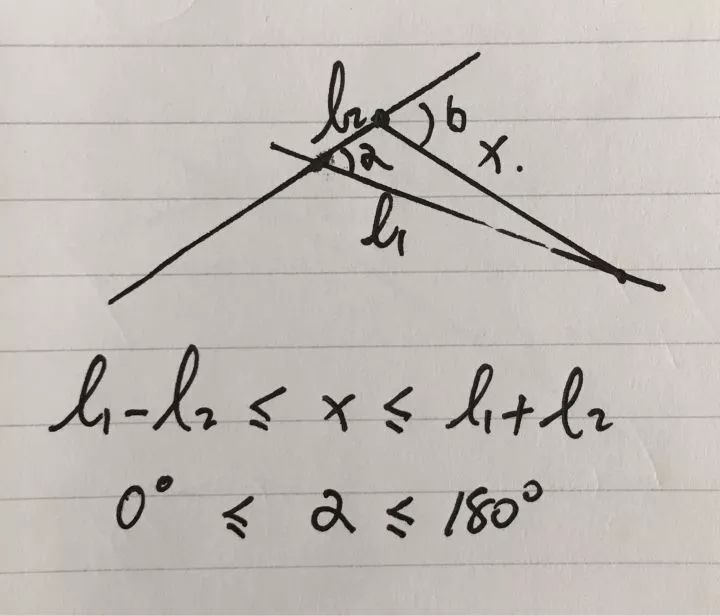 l₂
6
2
x.
l₁
l₁-l₂ ≤ x ≤ l₁+l₂
0° ≤ 2 ≤ 180°